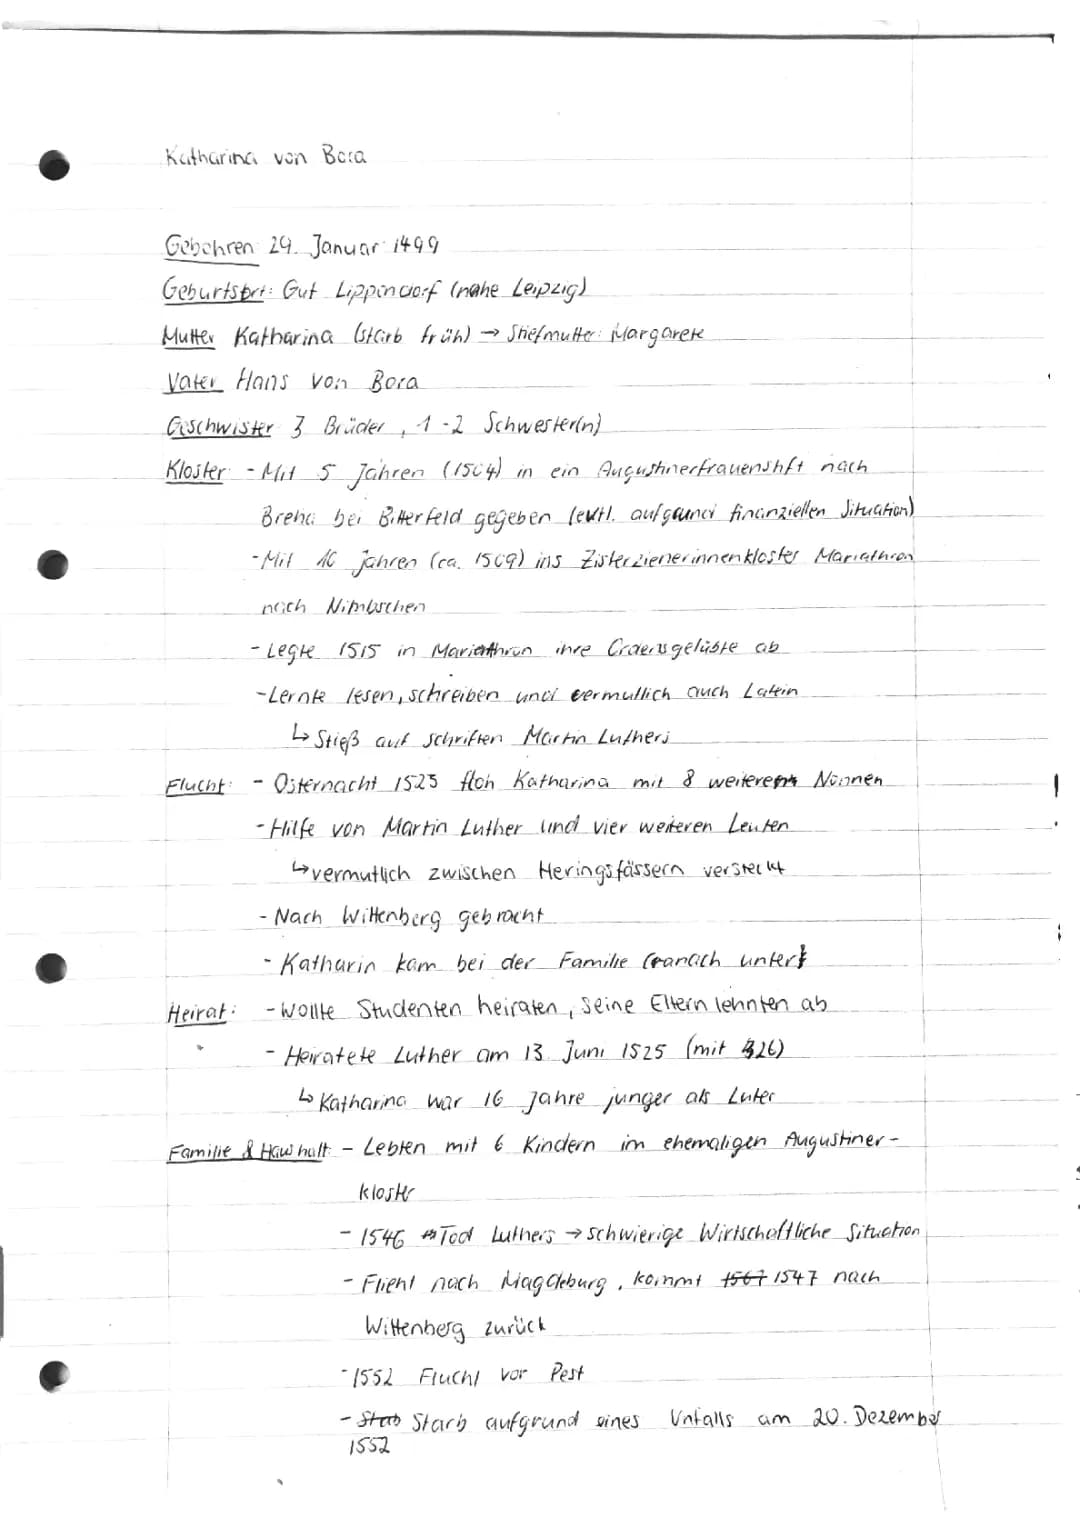 Katharina von Bora
Gebohren 29. Januar 1499
Geburtsort: Gut Lippendorf (nahe Leipzig)
Mutter Katharina (starb früh) → Stiefmutter: Margarete
Vater Hans von Bora
Geschwister 3 Brüder, 1-2 Schwester(n)
Kloster - Mit 5 Jahren (1504) in ein Augustinerfrauenstift nach
Brehna bei Bitterfeld gegeben (evtl. aufgrund finanziellen Situation)
- Mit 10 Jahren (ca. 1509) ins Zisterzienerinnenkloster Mariathron
nach Nimbschen
- Legte 1515 in Mariathron ihre Ordensgelübte ab
- Lernte lesen, schreiben und vermutlich auch Latein
↳ Stieß auf Schriften Martin Luthers
Flucht: - Osternacht 1523 floh Katharina mit 8 weiteren Nonnen
- Hilfe von Martin Luther und vier weiteren Leuten
↳ vermutlich zwischen Heringsfässern versteckt
- Nach Wittenberg gebracht
- Katharin kam bei der Familie Cranach unter
Heirat: - Wollte Studenten heiraten, seine Eltern lehnten ab
- Heiratete Luther am 13. Juni 1525 (mit 26)
↳ Katharina war 16 Jahre junger als Luter
Familie & Haushalt: - Lebten mit 6 Kindern im ehemaligen Augustiner-
kloster
- 1546 Tod Luthers → schwierige Wirtschaftliche Situation
- Flieht nach Magdeburg, kommt 1567 1547 nach
Wittenberg zurück
- 1552 Flucht vor Pest
- Stab Starb aufgrund eines Unfalls am 20. Dezember
1552